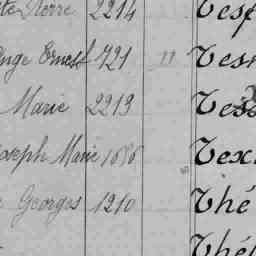 te Pierre 2214 Tesf
Ange Ernest 721 " Tesn
Marie 2213 Tess
Joseph Marie 1686 Tex
Georges 1210 Thé
Thé